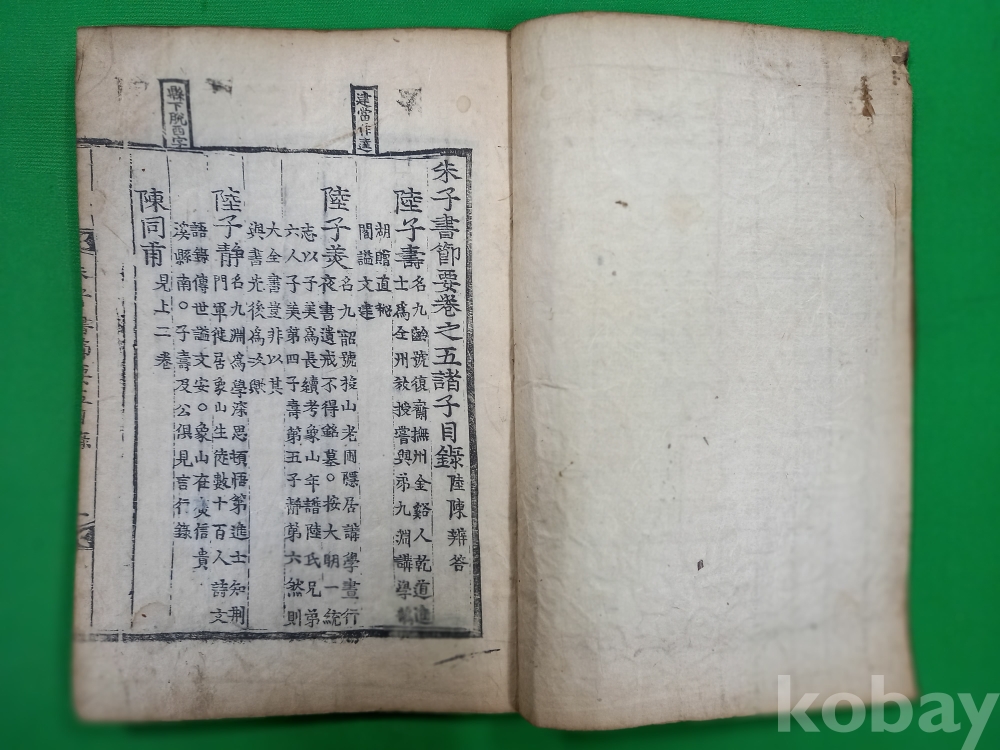 建當作達
縣下脫西字
朱子書節要卷之五諸子目錄 陸陳辨答
陸子壽 名九齡號復齋撫州金谿人乾道進
士爲全州敎授嘗與弟九淵講學鵝
湖贈直祕
閣謚文建
陸子美 名九韶號梭山老圃隱居講學晝行
夜書遺戒不得銘墓○按大明一統
志以子美爲長續考象山年譜陸氏兄弟
六人子美第四子壽第五子靜第六然則
大全書豈非以其
與書先後爲次歟
陸子靜 名九淵爲學深思頓悟第進士知荆
門軍徙居象山生徒數十百人詩文
語錄傳世謚文安○象山在廣信貴
溪縣南○子壽及公俱見言行錄
陳同甫 見上二卷
kobay